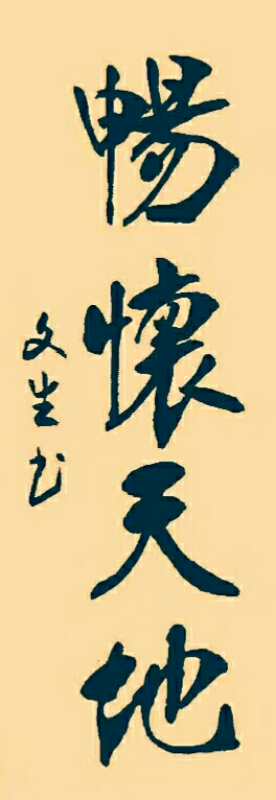 暢懷天地
文生书